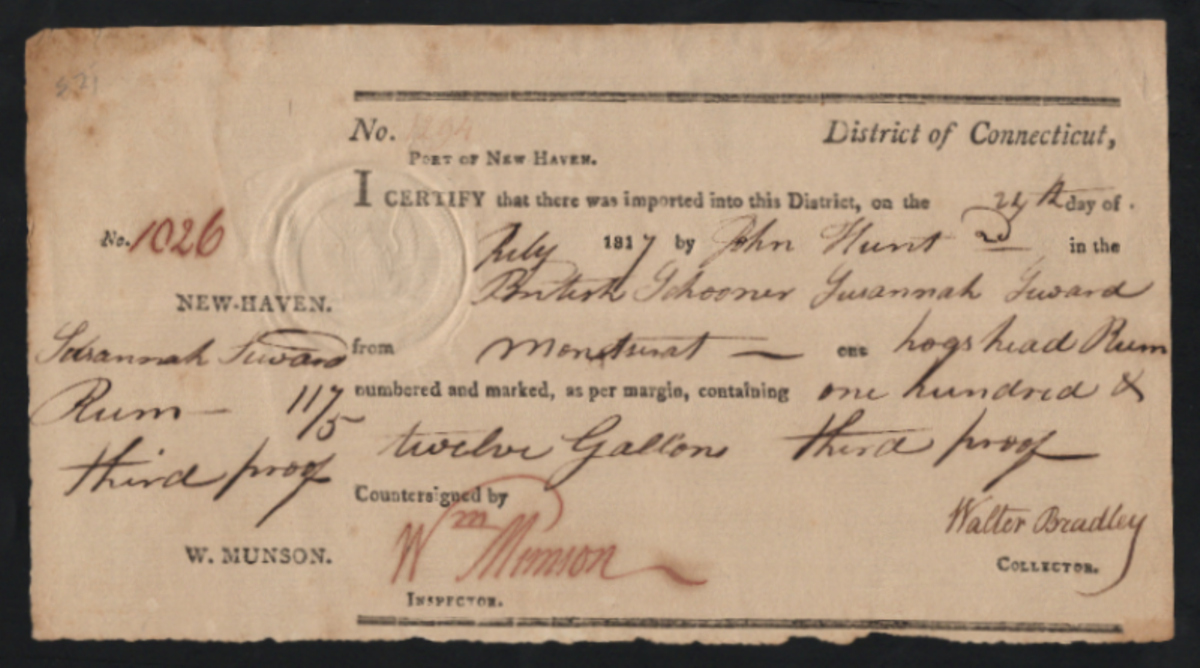 No. 1294
District of Connecticut,
PORT OF NEW HAVEN.
I CERTIFY that there was imported into this District, on the 24th day of
July 1817 by John Hunt 2d in the
British Schooner Susannah Seward
from Montserat — one hogshead Rum
numbered and marked, as per margin, containing one hundred &
twelve Gallons third proof
Countersigned by
Wm Munson
INSPECTOR.
Walter Bradley
COLLECTOR.
No. 1026
NEW-HAVEN.
Susannah Seward
Rum — 117/5
third proof
W. MUNSON.